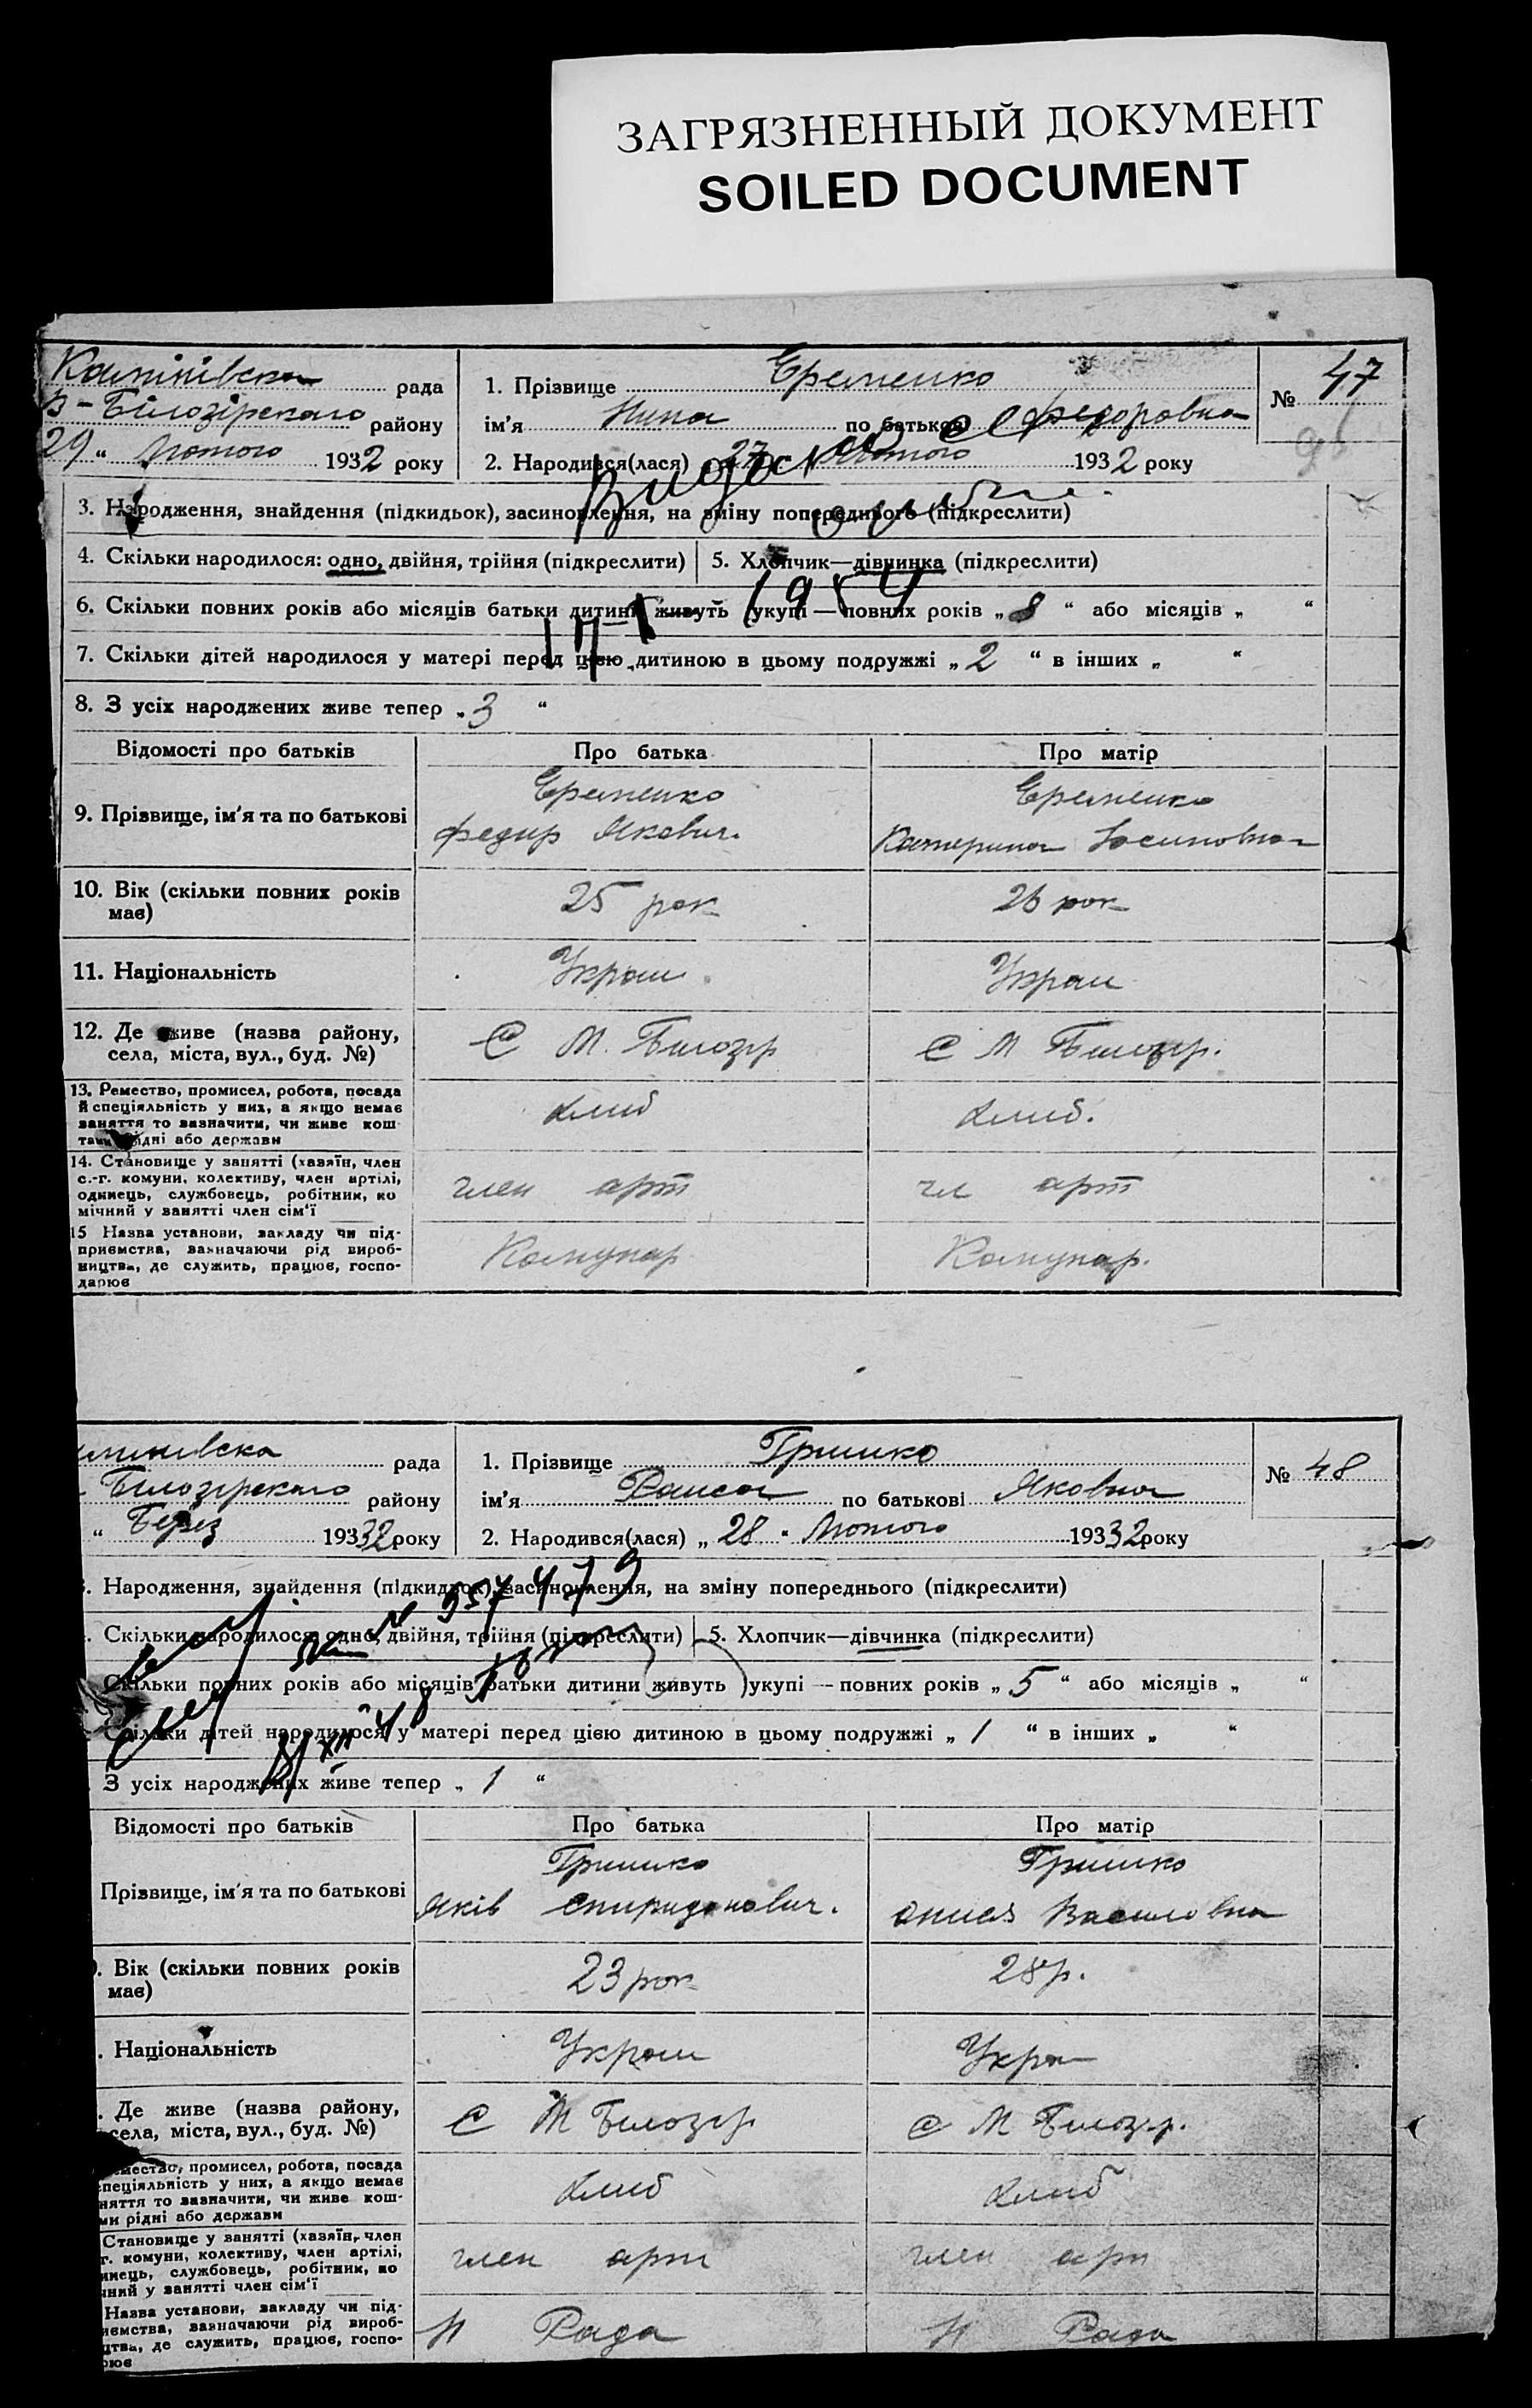 ЗАГРЯЗНЕННЫЙ ДОКУМЕНТ
SOILED DOCUMENT
рада
В-Білозірского району
29 " Лютого 1932 року
1. Прізвище Єременко
ім'я Нина по батькові Федоровна
2. Народився(лася) „ 27 Лютого 1932 року
№ 47
3. Народження, знайдення (підкидьок), засиновлення, на зміну попереднього (підкреслити)
4. Скільки народилося: одно, двійня, трійня (підкреслити) 5. Хлопчик—дівчинка (підкреслити)
1954
6. Скільки повних років або місяців батьки дитини живуть укупі — повних років „ 8 “ або місяців „ “
7. Скільки дітей народилося у матері перед цією дитиною в цьому подружжі „ 2 “ в інших „ “
8. З усіх народжених живе тепер „ 3 “
Відомості про батьків Про батька Про матір
9. Прізвище, ім'я та по батькові
Єременко
Федир Якович.
Єременко
Катерина Іосиповна
10. Вік (скільки повних років
має)
25 рок
26 рок
11. Національність
Украи
Украи
12. Де живе (назва району,
села, міста, вул., буд. №)
С М. Білозір
С М Білозір.
13. Ремество, промисел, робота, посада
й спеціяльність у них, а якщо немає
заняття то зазначити, чи живе кош
рідні або держави
хліб
хліб.
14. Становище у занятті (хазяїн, член
с.-г. комуни, колективу, член артілі,
одинець, службовець, робітник, по
мічний у занятті член сім'ї
член арт
чл арт
15 Назва установи, закладу чи під-
приємства, зазначаючи рід вироб-
ництва, де служить, працює, госпо-
дарює
Комунар
Комунар.
рада
Білозірского району
“ Берез 19332 року
1. Прізвище Гришко
ім'я Раиса по батькові Яковна
2. Народився(лася) „ 28 “ Лютого 19332 року
№ 48
Народження, знайдення (підкидьок), засиновлення, на зміну попереднього (підкреслити)
Скільки народилося: одно, двійня, трійня (підкреслити) 5. Хлопчик—дівчинка (підкреслити)
Скільки повних років або місяців батьки дитини живуть укупі — повних років „ 5 “ або місяців „ “
Скільки дітей народилося у матері перед цією дитиною в цьому подружжі „ 1 “ в інших „ “
З усіх народжених живе тепер „ 1 “
Відомості про батьків Про батька Про матір
Прізвище, ім'я та по батькові
Гришко
Яків Спиридонович.
Гришко
Василовна
Вік (скільки повних років
має)
23 рок
28 р.
. Національність
Украи
Укра
. Де живе (назва району,
села, міста, вул., буд. №)
С М Білозір
С М Білозір.
промисел, робота, посада
пеціяльність у них, а якщо немає
няття то зазначити, чи живе кош-
ми рідні або держави
хліб
хліб
Становище у занятті (хазяїн, член
г. комуни, колективу, член артілі,
инець, службовець, робітник, по
чний у занятті член сім'ї
член арт
член арт
Назва установи, закладу чи під-
иємства, зазначаючи рід вироб-
цтва, де служить, працює, госпо-
рює
Рада
Рада